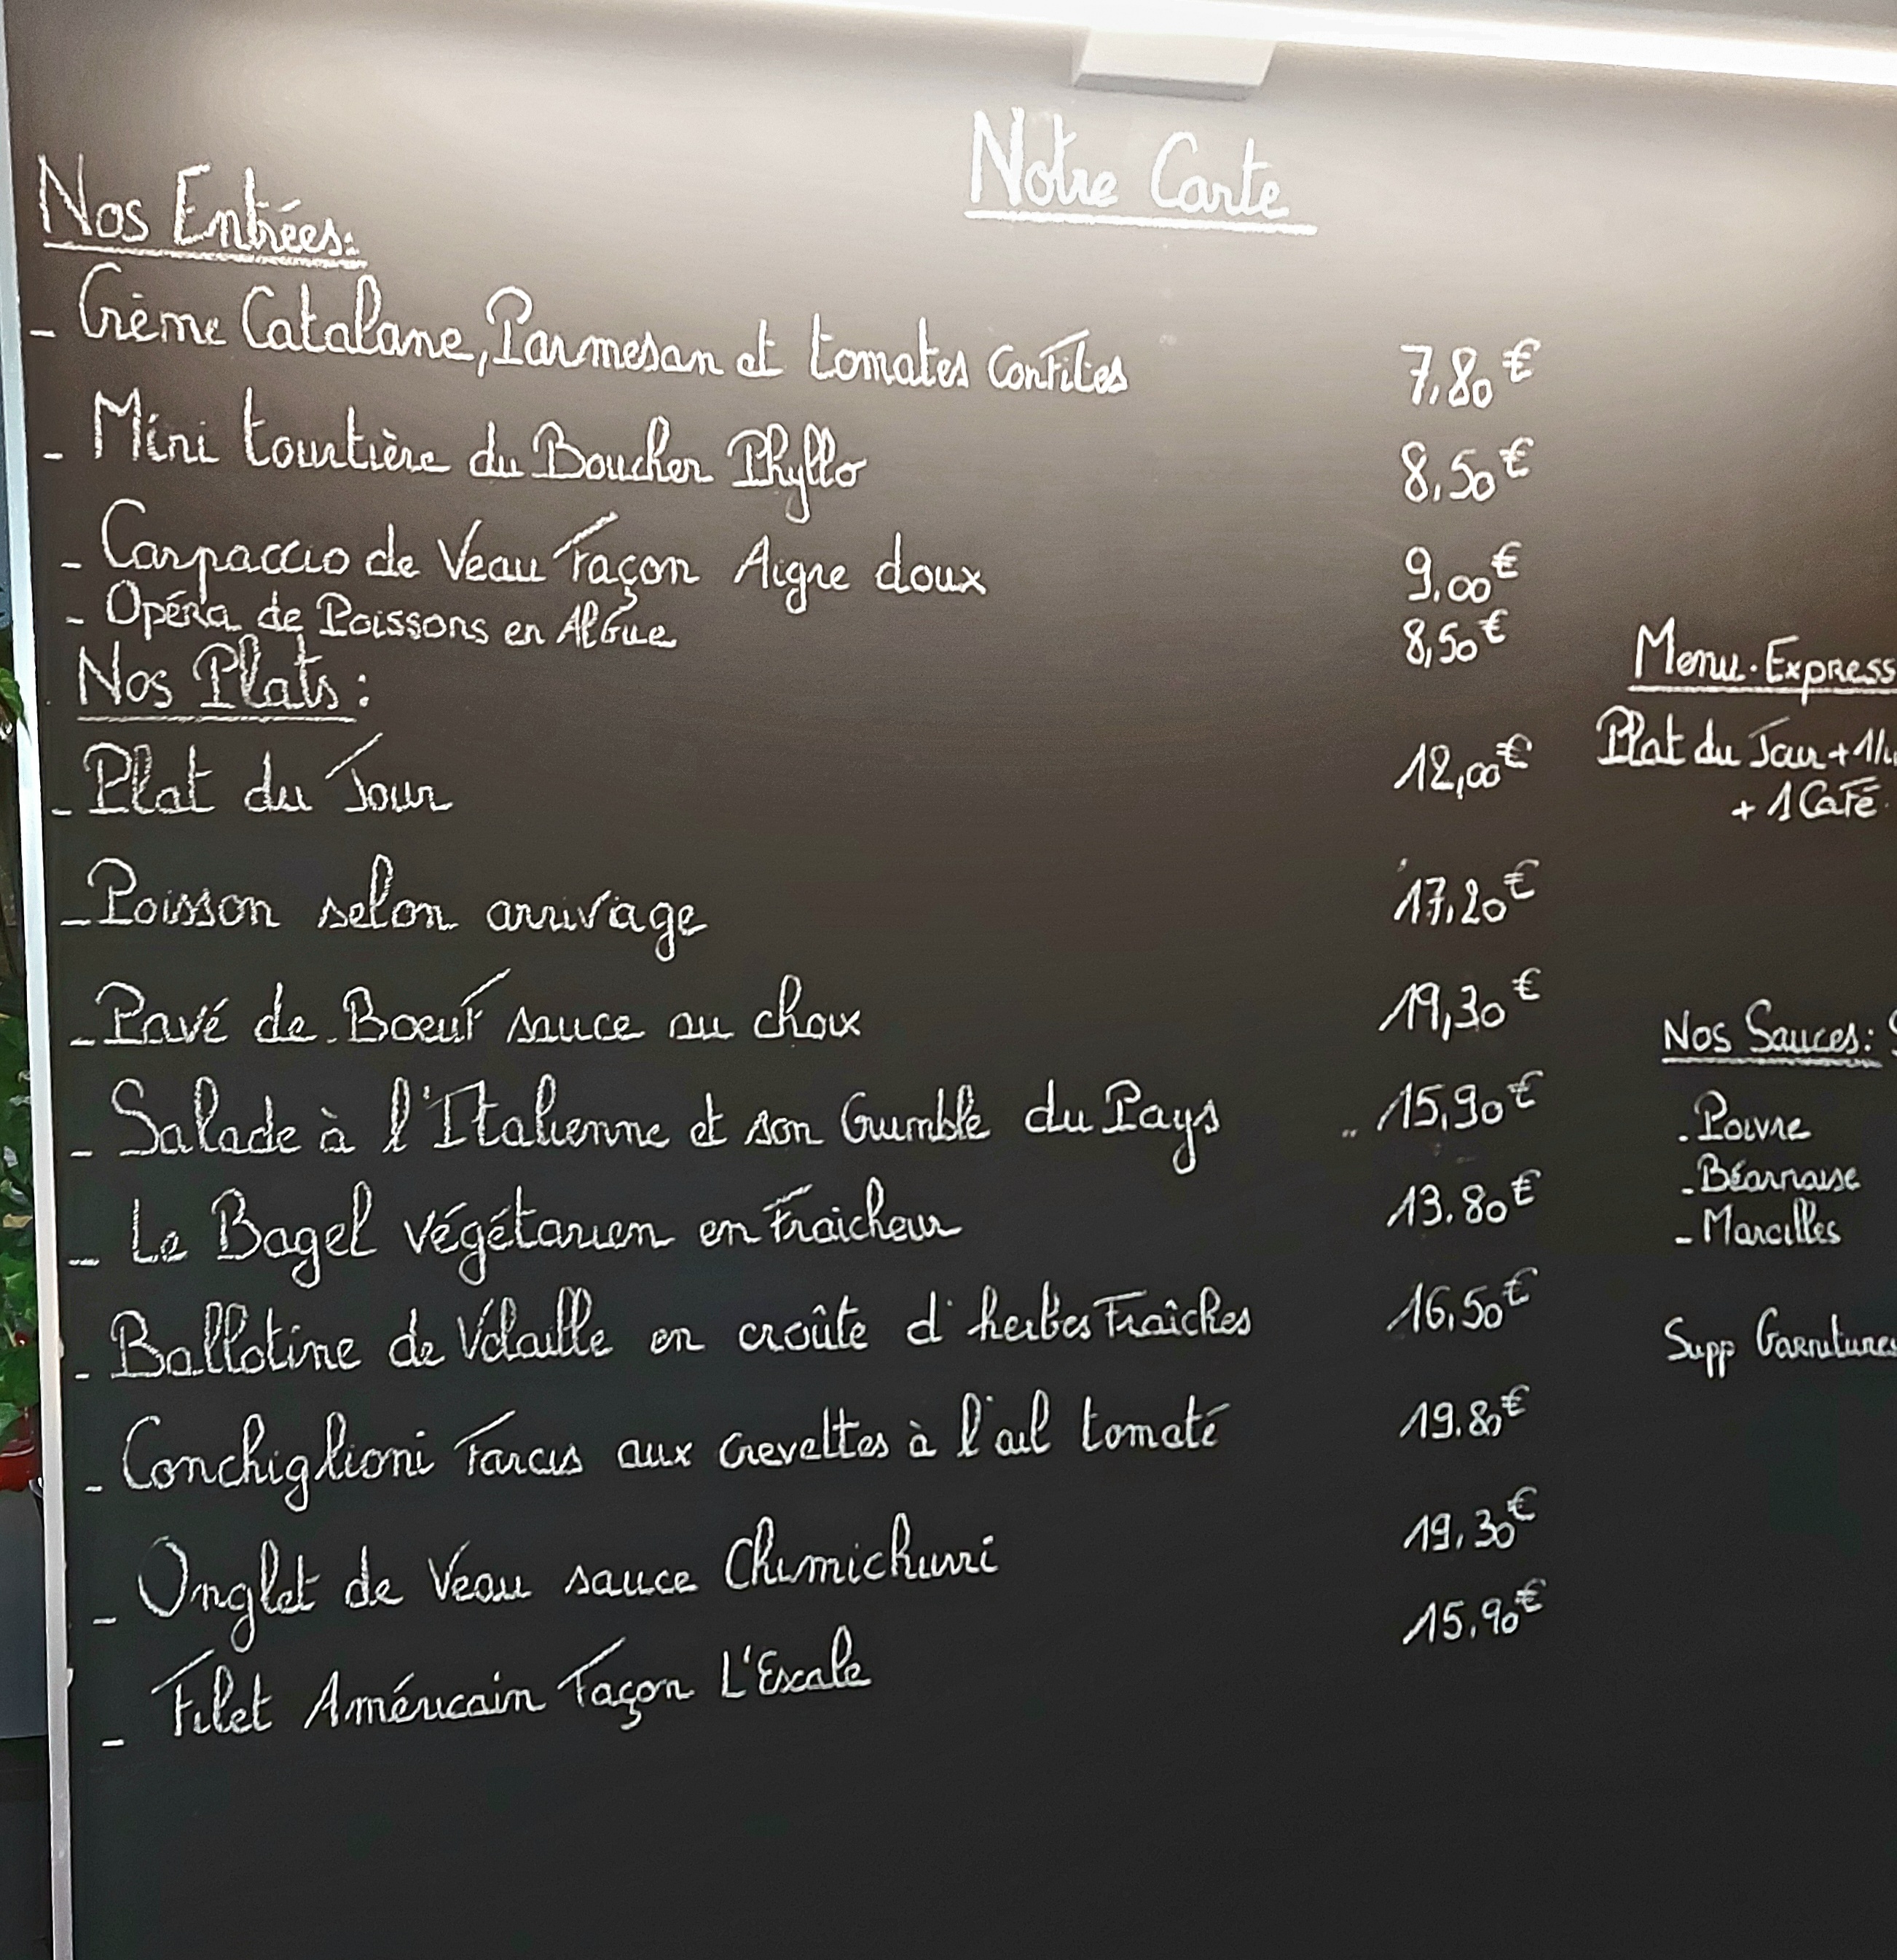 Notre Carte
Nos Entrées:
- Crème Catalane, Parmesan et tomates confites 7,80€
- Mini tourtière du Boucher Phyllo 8,50€
- Carpaccio de Veau façon Aigre doux 9,00€
- Opéra de Poissons en Algue 8,50€
Nos Plats:
- Plat du Jour 12,00€
- Poisson selon arrivage 17,20€
- Pavé de Boeuf sauce au choix 19,30€
- Salade à l'Italienne et son Crumble du Pays 15,90€
- Le Bagel végétarien en Fraicheur 13.80€
- Ballotine de Volaille en croûte d'herbes Fraîches 16,50€
- Conchiglioni farcis aux crevettes à l'ail tomaté 19.80€
- Onglet de Veau sauce Chimichurri 19,30€
- Filet Américain façon L'Escale 15,90€
Menu.Express
Plat du Jour +
+ 1 Café
Nos Sauces:
- Poivre
- Béarnaise
- Marcilles
Supp Garnitures